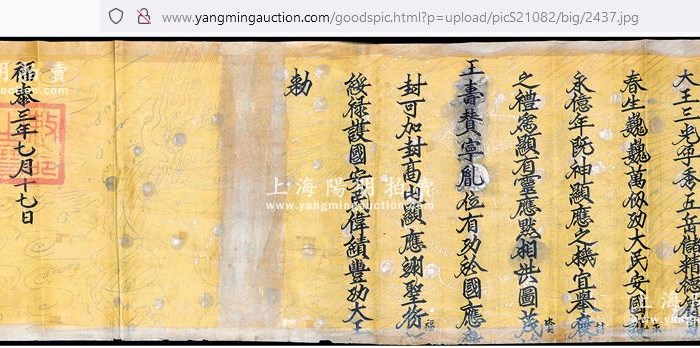 www.yangmingauction.com/goodspic.html?p=upload/picS21082/big/2437.jpg
大王三光孕秀五岳儲精
春生巍巍萬仞功大民安國
永億年既神顯應之機宜舉
之禮為顯有靈應默相洪圖茂
王壽贊寧胤位有功於國應
封可加封高山顯應翊聖
福
綏祿護國安民偉績豐功大王
勅
福泰三年七月十七日
上海陽明拍賣
www.yangmingauction.com